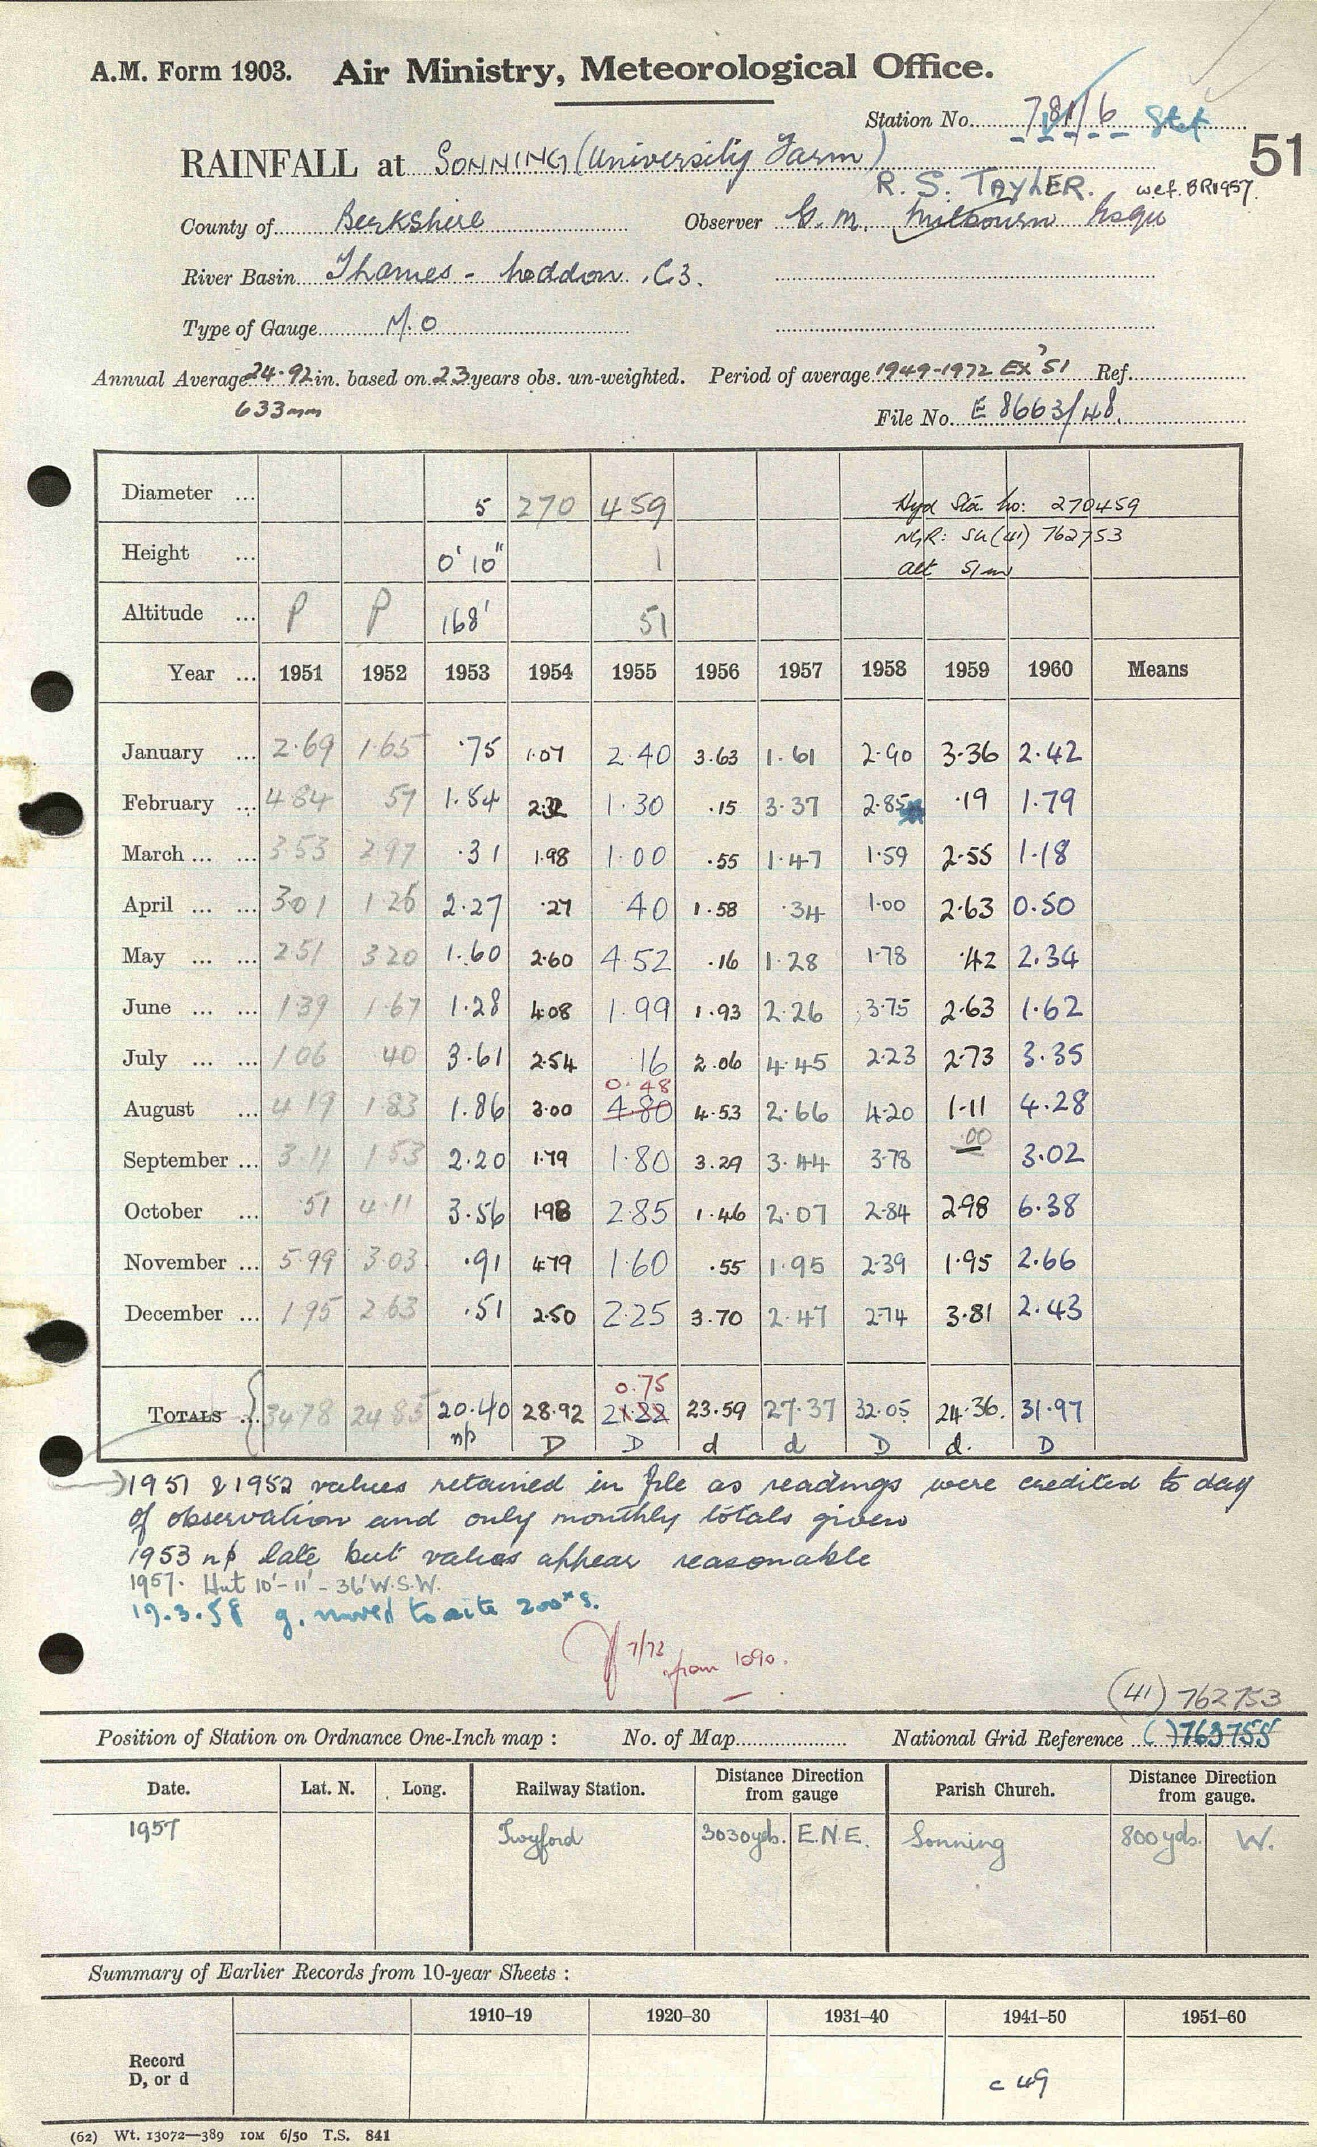 A.M. Form 1903. Air Ministry, Meteorological Office.
Station No. 781/6
51
RAINFALL at SONNING (University Farm)
R. S. TAYLER. w.e.f. BR1957.
County of Berkshire Observer G. M. Milbourn Esqu
River Basin Thames - Loddon .C3.
Type of Gauge M.O
Annual Average 24.92 in. based on 23 years obs. un-weighted. Period of average 1949-1972 EX '51 Ref.
633mm
File No. E 8663/48.
Diameter ... 5 270 459 Hyd Sta. No: 270459
NGR: SU(41) 762753
Height ... 0' 10" 1
alt 51m
Altitude ... P P 168' 51
Year ... 1951 1952 1953 1954 1955 1956 1957 1958 1959 1960 Means
January ... 2.69 1.65 .75 1.07 2.40 3.63 1.61 2.90 3.36 2.42
February ... 4.84 57 1.84 2.32 1.30 .15 3.37 2.85 .19 1.79
March ... ... 3.53 2.97 .31 1.98 1.00 .55 1.47 1.59 2.55 1.18
April ... ... 3.01 1.26 2.27 .27 40 1.58 .34 1.00 2.63 0.50
May ... ... 2.51 3.20 1.60 2.60 4.52 .16 1.28 1.78 .42 2.34
June ... ... 1.39 1.67 1.28 4.08 1.99 1.93 2.26 3.75 2.63 1.62
July ... ... 1.06 40 3.61 2.54 16 2.06 4.45 2.23 2.73 3.35
0.48
August ... 4.19 1.83 1.86 3.00 4.80 4.53 2.66 4.20 1.11 4.28
September ... 3.11 1.53 2.20 1.79 1.80 3.29 3.44 3.78 .00 3.02
October ... .51 4.11 3.56 1.98 2.85 1.46 2.07 2.84 2.98 6.38
November ... 5.99 3.03 .91 4.79 1.60 .55 1.95 2.39 1.95 2.66
December ... 1.95 2.63 .51 2.50 2.25 3.70 2.47 2.74 3.81 2.43
0.75
TOTALS ... 34.78 24.85 20.40 28.92 21.22 23.59 27.37 32.05 24.36. 31.97
np D D d d D d. D
1951 & 1952 values retained in file as readings were credited to day
of observation and only monthly totals given
1953 np late but values appear reasonable
1957. Hut 10'-11'-36' W.S.W.
19.3.58 g. moved to site 200ˣ S.
7/73 from 1090.
(41) 762753
Position of Station on Ordnance One-Inch map : No. of Map National Grid Reference ( ) 763755
Date. Lat. N. Long. Railway Station. Distance Direction from gauge Parish Church. Distance Direction from gauge.
1957 Twyford 3030yds. E.N.E. Sonning 800yds. W.
Summary of Earlier Records from 10-year Sheets :
1910–19 1920–30 1931–40 1941–50 1951–60
Record
D, or d
c 49
(62) Wt. 13072—389 10M 6/50 T.S. 841